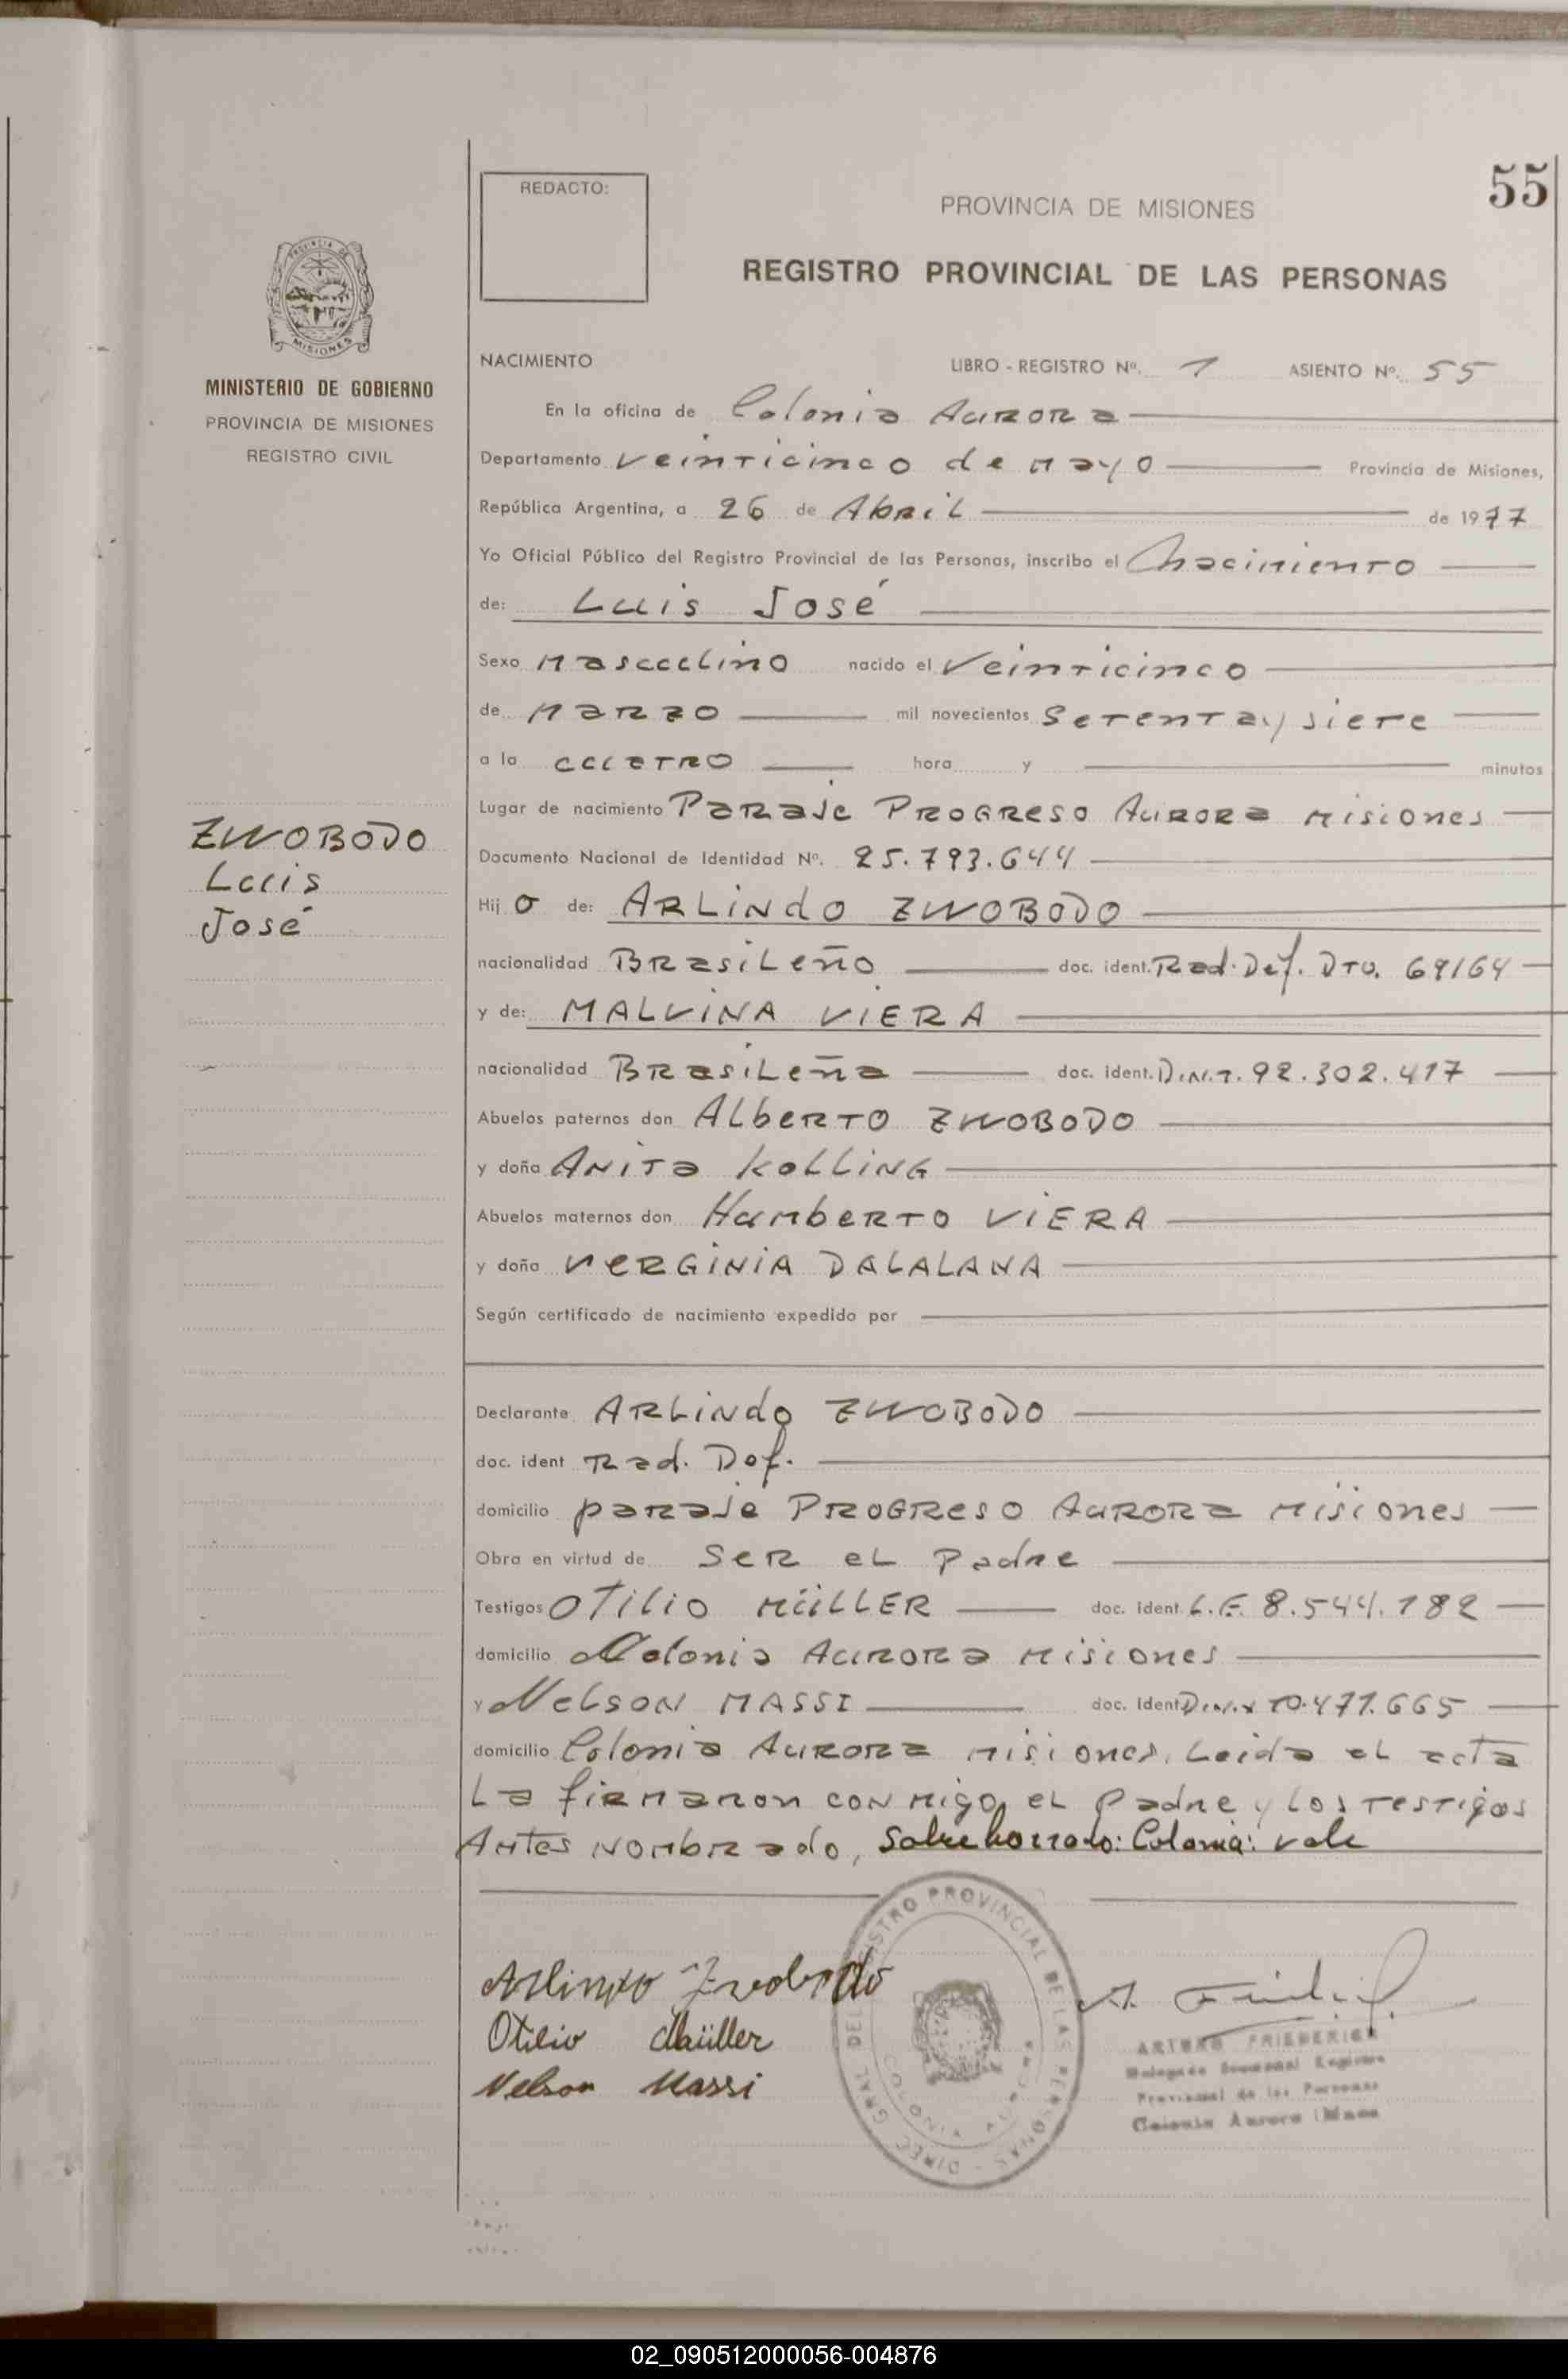 55
REDACTO:
PROVINCIA DE MISIONES
REGISTRO PROVINCIAL DE LAS PERSONAS
PROVINCIA DE
MISIONES
MINISTERIO DE GOBIERNO
PROVINCIA DE MISIONES
REGISTRO CIVIL
ZWOBODO
Luis
José
NACIMIENTO LIBRO - REGISTRO Nº. 1 ASIENTO Nº. 55
En la oficina de Colonia Aurora
Departamento veinticinco de mayo Provincia de Misiones,
República Argentina, a 26 de Abril de 1977
Yo Oficial Público del Registro Provincial de las Personas, inscribo el nacimiento
de: Luis José
Sexo masculino nacido el veinticinco
de marzo mil novecientos setenta y siete
a la cuatro hora y minutos
Lugar de nacimiento Paraje Progreso Aurora misiones
Documento Nacional de Identidad Nº. 25.793.644
Hij o de: ARLINdO ZWOBODO
nacionalidad Brasileño doc. ident. Rad. Def. Dto. 69/64
y de: MALVINA VIERA
nacionalidad Brasileña doc. ident. D.N.I. 92.302.417
Abuelos paternos don Alberto ZWOBODO
y doña Anita KOLLING
Abuelos maternos don Humberto VIERA
y doña VERGINIA DALALANA
Según certificado de nacimiento expedido por
Declarante ARLINdO ZWOBODO
doc. ident Rad. Def.
domicilio paraje Progreso Aurora misiones
Obra en virtud de ser el padre
Testigos OTILIO MÜLLER doc. ident L.E. 8.544.182
domicilio Colonia Aurora misiones
y Nelson MASSI doc. ident 10.477.665
domicilio Colonia Aurora misiones. Leida el acta
La firmaron conmigo el padre y los testigos
Antes nombrado, sobre borrado: Colonia: vale
Arlindo Zwobodo
Otilio Müller
Nelson Massi
DIREC. GRAL. DEL REGISTRO PROVINCIAL DE LAS PERSONAS
COLONIA AURORA
ARTURO FRIEDERICH
Delegado Seccional Registro
Provincial de las Personas
Colonia Aurora (Mnes
02_090512000056-004876